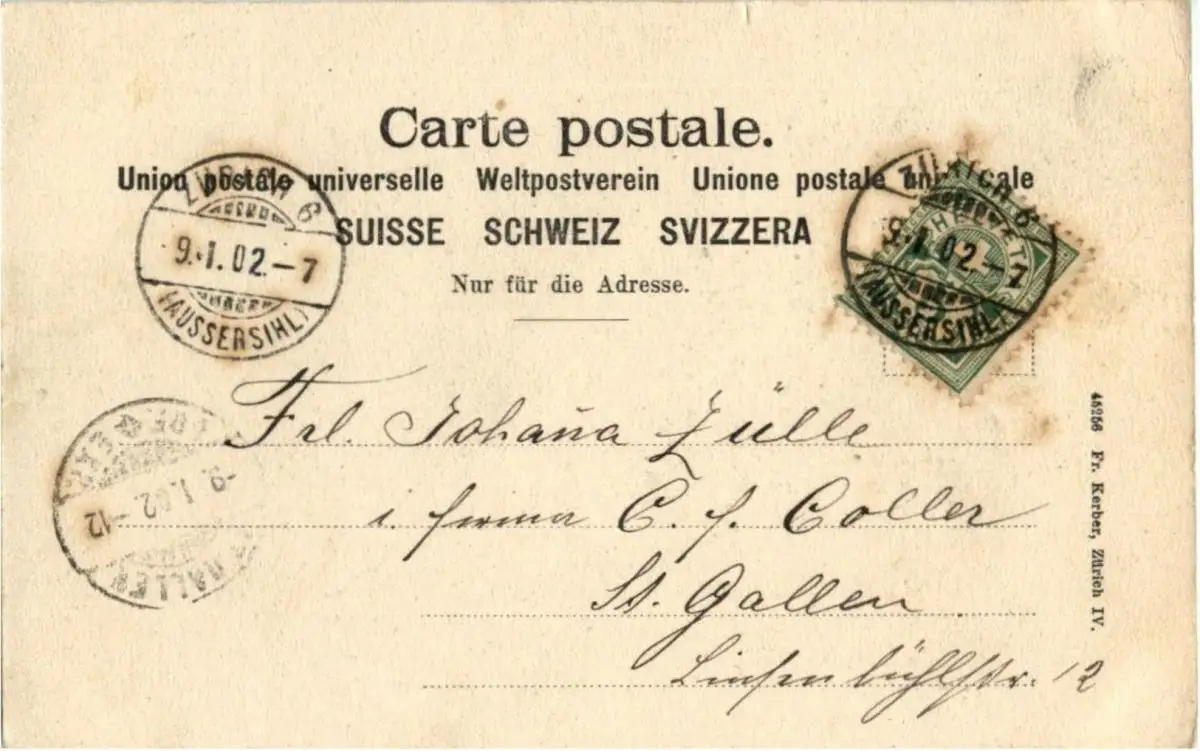 Carte postale.
Union postale universelle Weltpostverein Unione postale universale
SUISSE SCHWEIZ SVIZZERA
Nur für die Adresse.
ZÜRICH 6
9.I.02.–7
(AUSSERSIHL)
ZÜRICH 6
9.I.02.–7
(AUSSERSIHL)
HELVETIA
Frl. Johan̄a Zülle
i. firma C. f. Coller
St. Gallen
Linsenbühlstr. 12
-9.I.02.–12
GALLEN
46256 Fr. Kerber, Zürich IV.